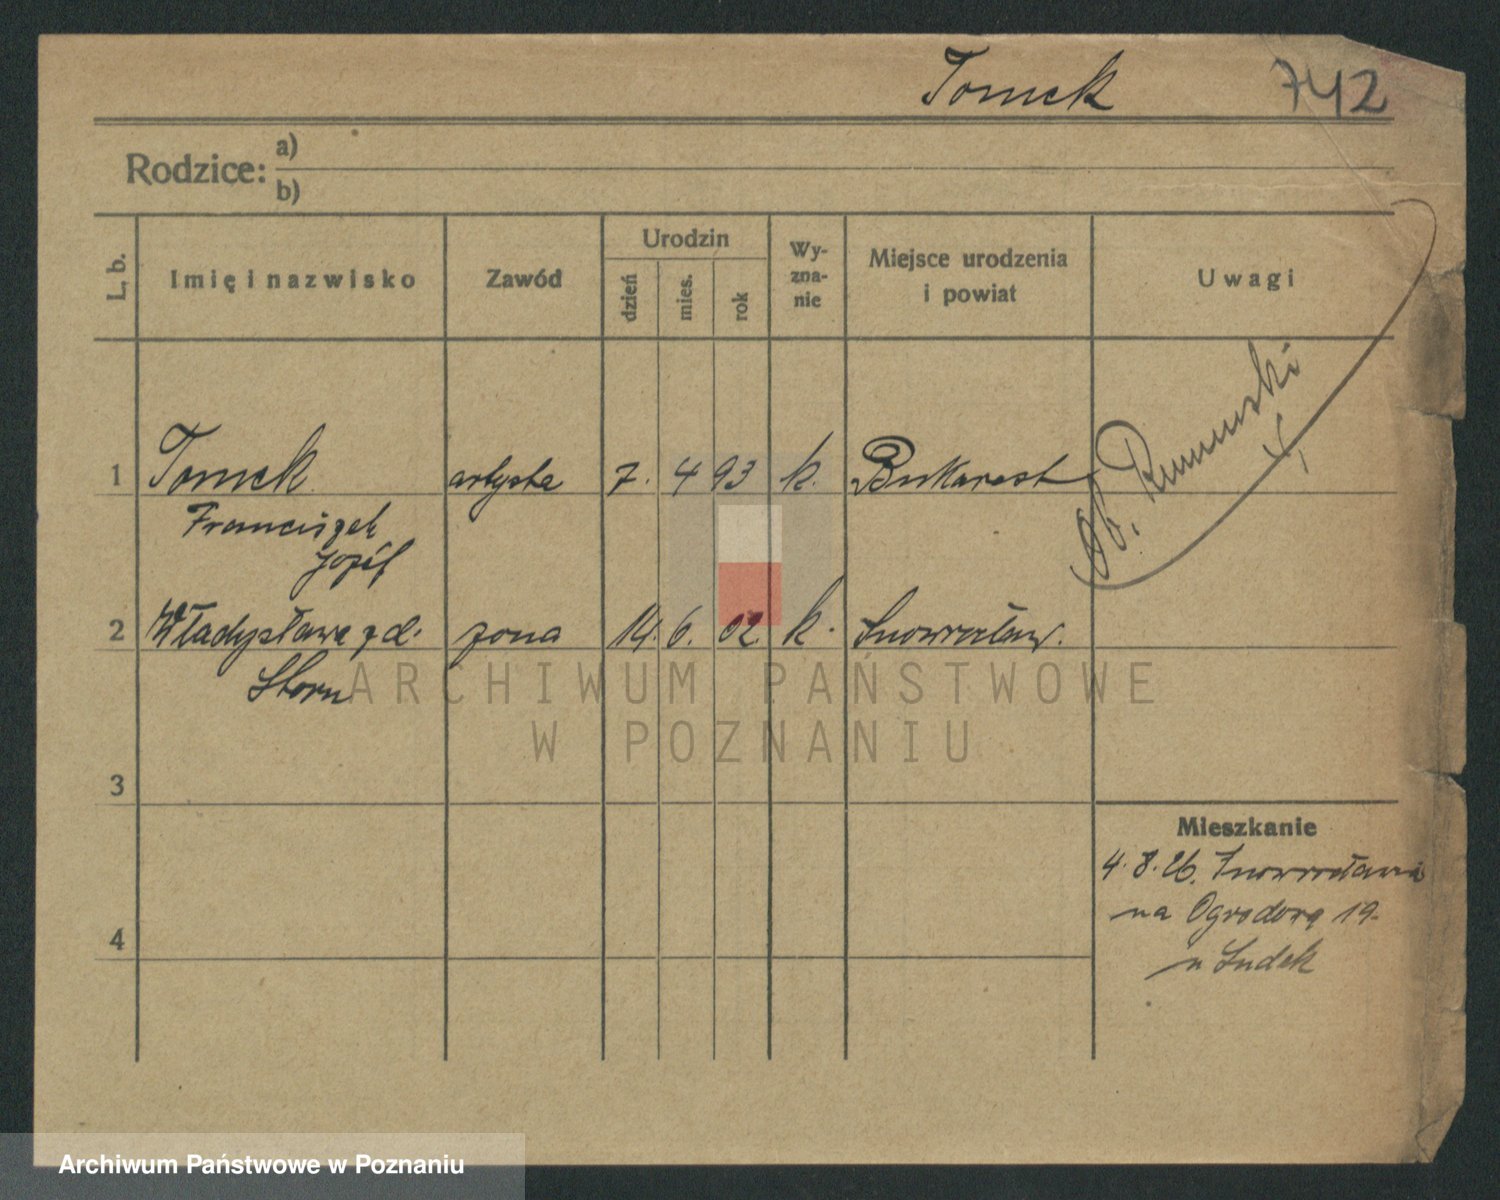 Tomek 742
Rodzice: a)
b)
L. b. Imię i nazwisko Zawód Urodzin dzień mies. rok Wy-zna-nie Miejsce urodzenia i powiat Uwagi
1 Tomek artysta 7. 4 93 k. Bukarest
Franciszek
Józéf
Ob. Rumuński
2 Władysława z d. żona 14. 6. 02 k. Inowrocław.
Storn
ARCHIWUM PAŃSTWOWE
W POZNANIU
3
Mieszkanie
4. 8. 26. Inowrocławia
na Ogrodową 19
4
u Ludek
Archiwum Państwowe w Poznaniu